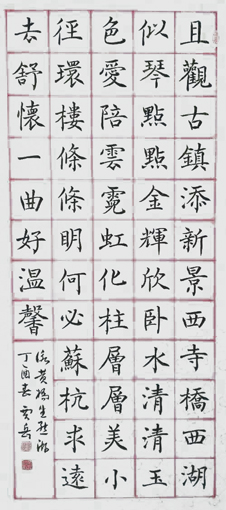 且觀古鎮添新景西寺橋西湖
似琴點點金輝欣卧水清清玉
色愛陪雲霓虹化柱層層美小
徑環樓條條明何必蘇杭求遠
去舒懷一曲好溫馨
丁酉春